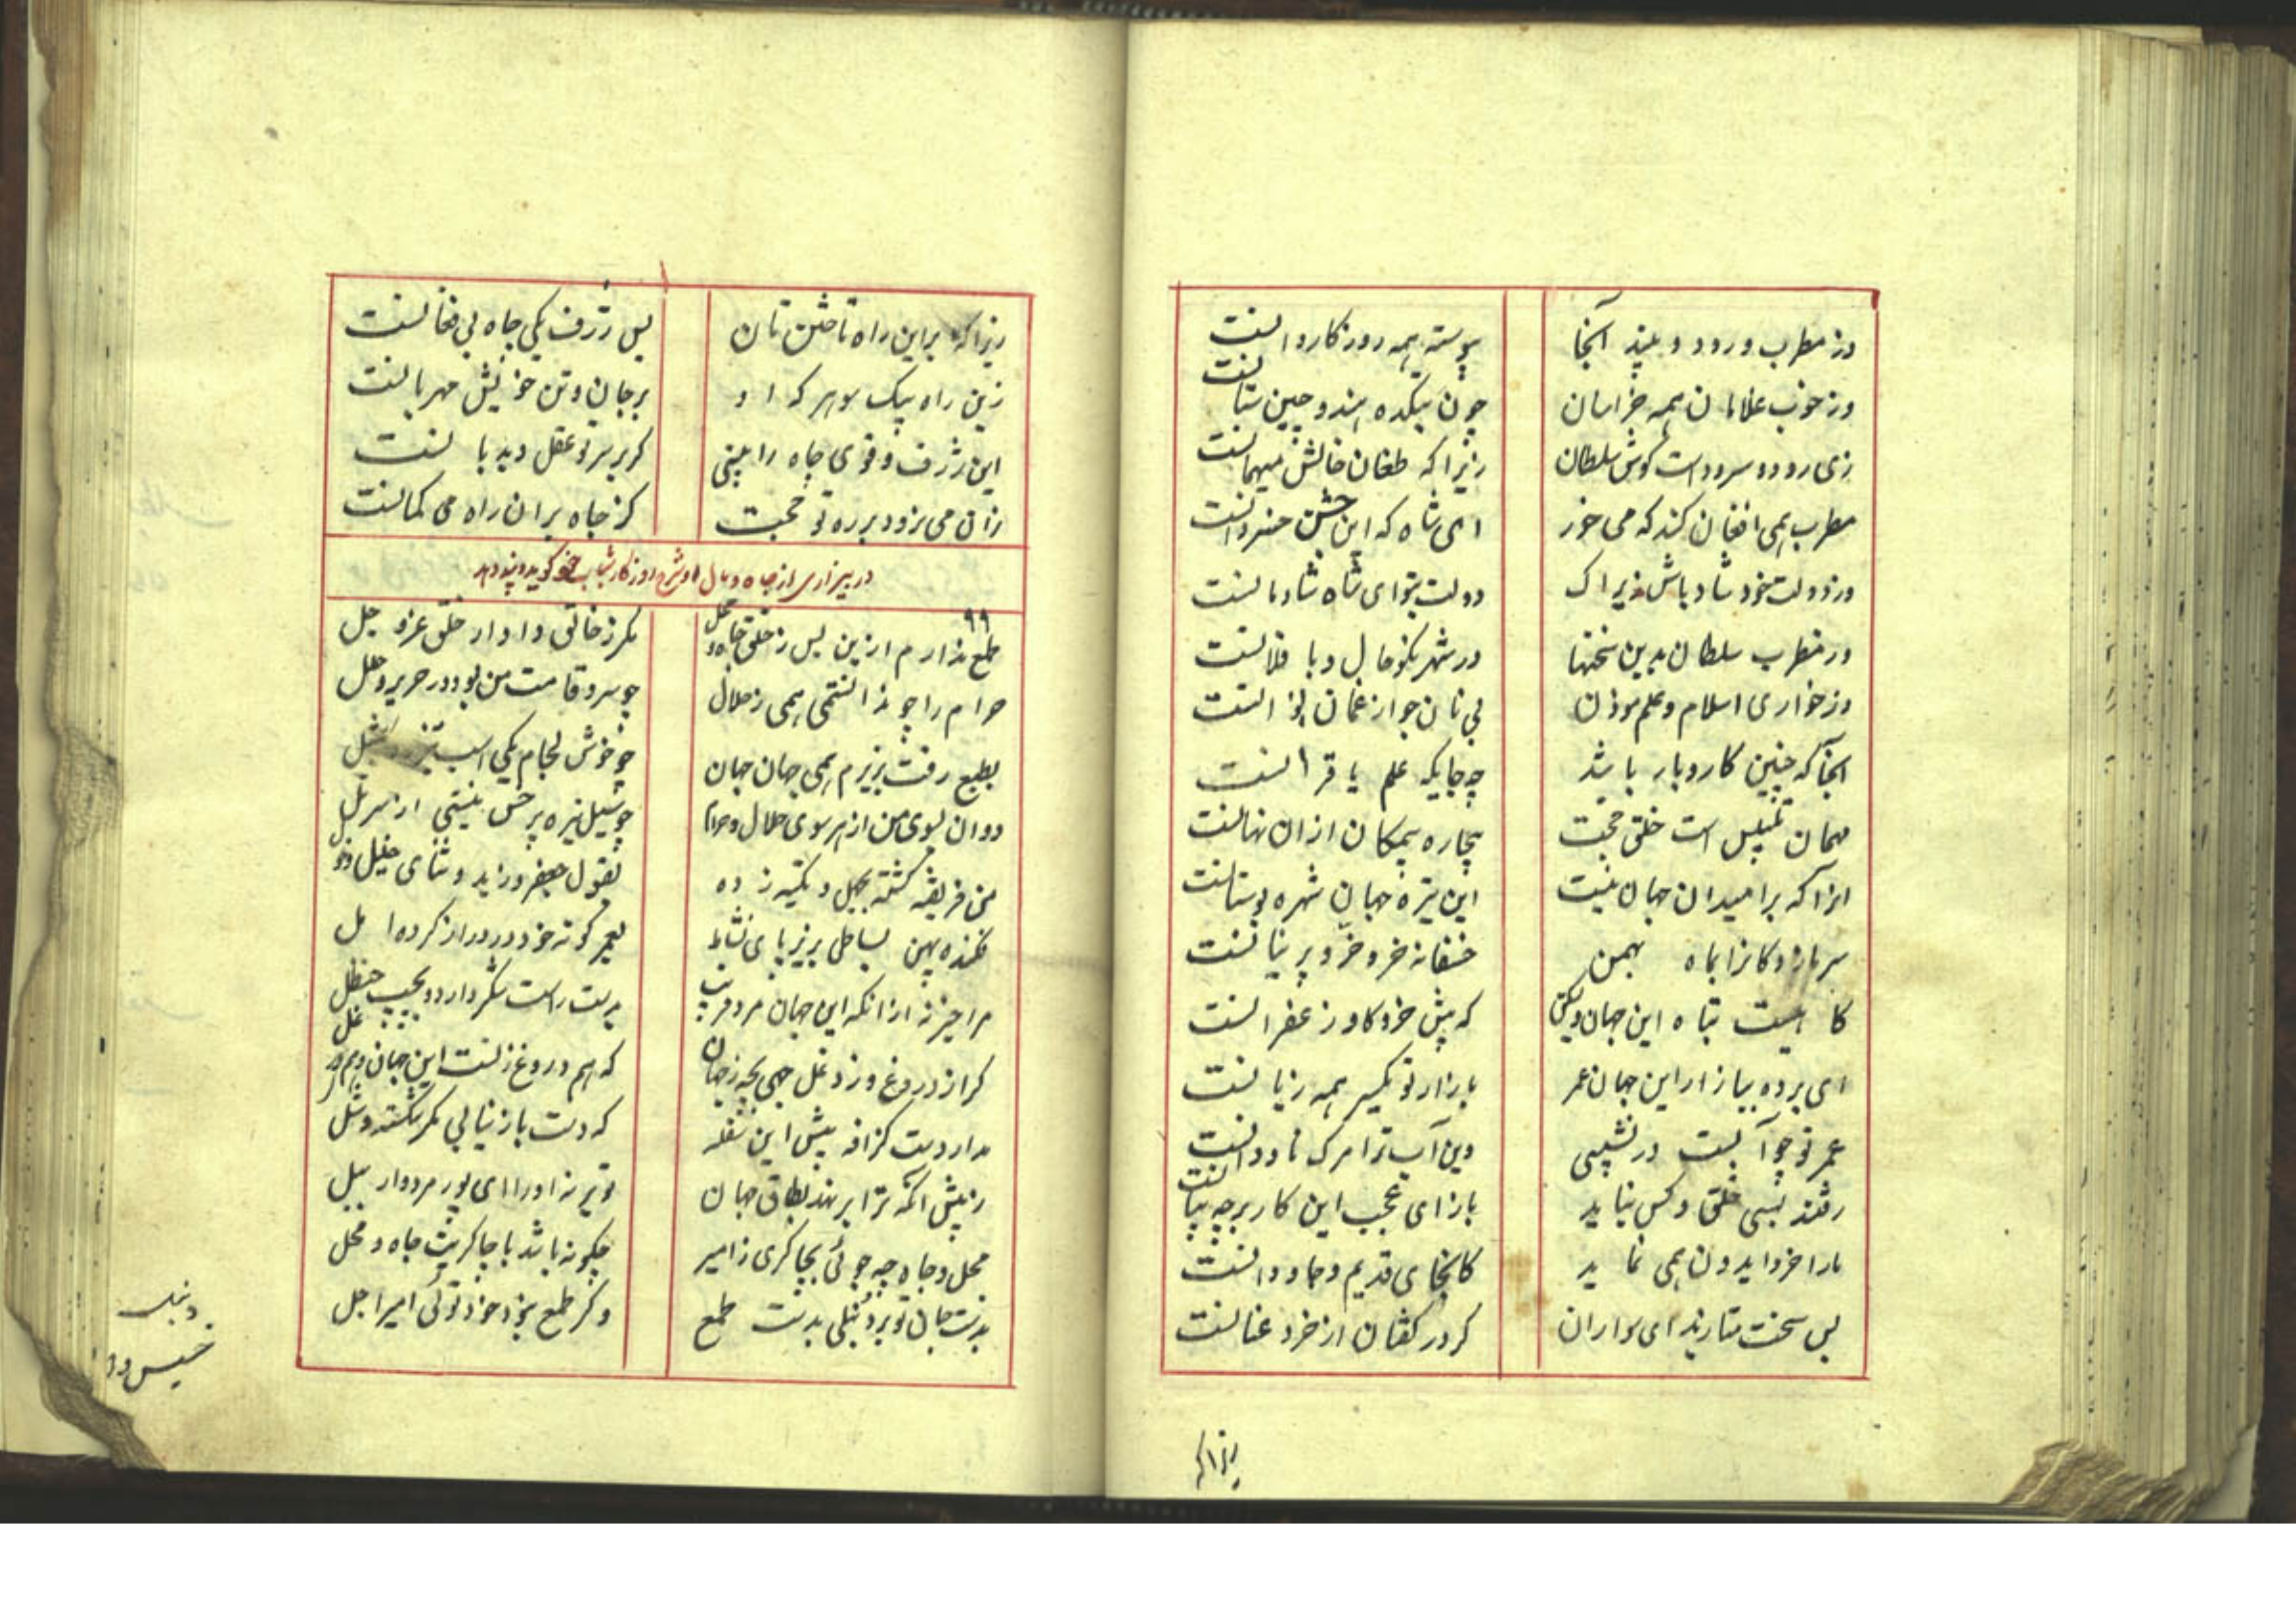 وز مطرب و رود و بلبذ آنجا پیوسته همه روز کاروانست
وز خوب غلامان همه خراسان چون بتکده هند و چین ستانست
زی رود و سرود است گوش سلطان زیرا که طغان خانش میهمانست
مطرب همی افغان کند که می خور ای شاه که این جشن خسروانست
وز دولت خود شاد باش زیراک دولت بتو ای شاه شادمانست
وز مطرب سلطان بدین سخنها در شهر نکوحال و با فلانست
وز خواری اسلام و علم موذن بی نان چو از غمان نوانست
آنجا که چنین کار و بار باشد چه جایگه علم یا قرانست
مهمان بلیس است خلق حجت بیچاره بیمکان ازان نهانست
انرا که بر امیدان جهان نیست این تیره جهان شهره بوستانست
سر بازد و کانرا بماه بهمن خفتانه خز و خز و پرنیانست
کاهیست تباه این جهان ولیکن که پیش خر و گاو زعفرانست
ای برده ببازار این جهان عمر بازار تو یکسر همه زیانست
عمر تو چو آبست در نشیبی وین آب ترا مرگ ناودانست
رفتند بسی خلق و کس نیاید باز ای عجب این کار برچه سانست
مارا خرد ایدون همی نماید کانجای قدیم و جاودانست
بس سخت متازید ای سواران گر در کفتان از خرد عنانست
زیرا که
زیرا که براین راه تاختن تان بس ژرف یکی چاه بی فغانست
زین راه بیکسو هر که او بر جان و تن خویش مهربانست
این ژرف و قوی چاه را ببینی گر بر سر تو عقل دیدبانست
زان می نرود بر ره تو حجت کز چاه بران راه می گمانست
در بیزاری از جاه و مال و شرح روزگار شباب خود گوید و پند دهد
۹۹
طمع ندارم ازین پس ز خلق جاه و محل مگر ز خالق دادار خلق عز و جل
حرام را چو ندانستمی همی ز حلال چو سرو قامت من بود در حریر و حلل
بطبع رفت بزیرم همی جهان جهان چو خوش لجام یکی اسب تیز
دوان بسوی من از هر سوی حلال و حرام چو سیل تیره پر خس بنشیتی از سر تل
من فریفته گشته بجهل و تکیه زده بقول جعفر و زید و ثنای خلیل و
فکنده پهن بساطی بزیر پای نشاط بعمر کوته خود در دراز کرده امل
مرا خبر نه ازانکه این جهان مرد فریب بدست راست شکر دارد و بچپ حنظل
گر از دروغ و ز دغل جهی بجه ز جهان که هم دروغ زنست این جهان و هم
مدار دست گزافه بپیش این سفله که دست باز نیابی مگر شکسته و شل
ز پیش آنکه ترا بر نهد بطاق جهان تو بر نه او را ای پور مردوار بهل
محل و جاه چه جوئی بچاکری ز امیر چگونه باشد با چاکریت جاه و محل
بدست جان تو بر دنبلی بدست طمع وگر طمع ببرد خود توئی امیر اجل